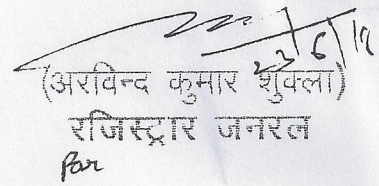 23/6/17
(अरविन्द कुमार शुक्ला)
रजिस्ट्रार जनरल